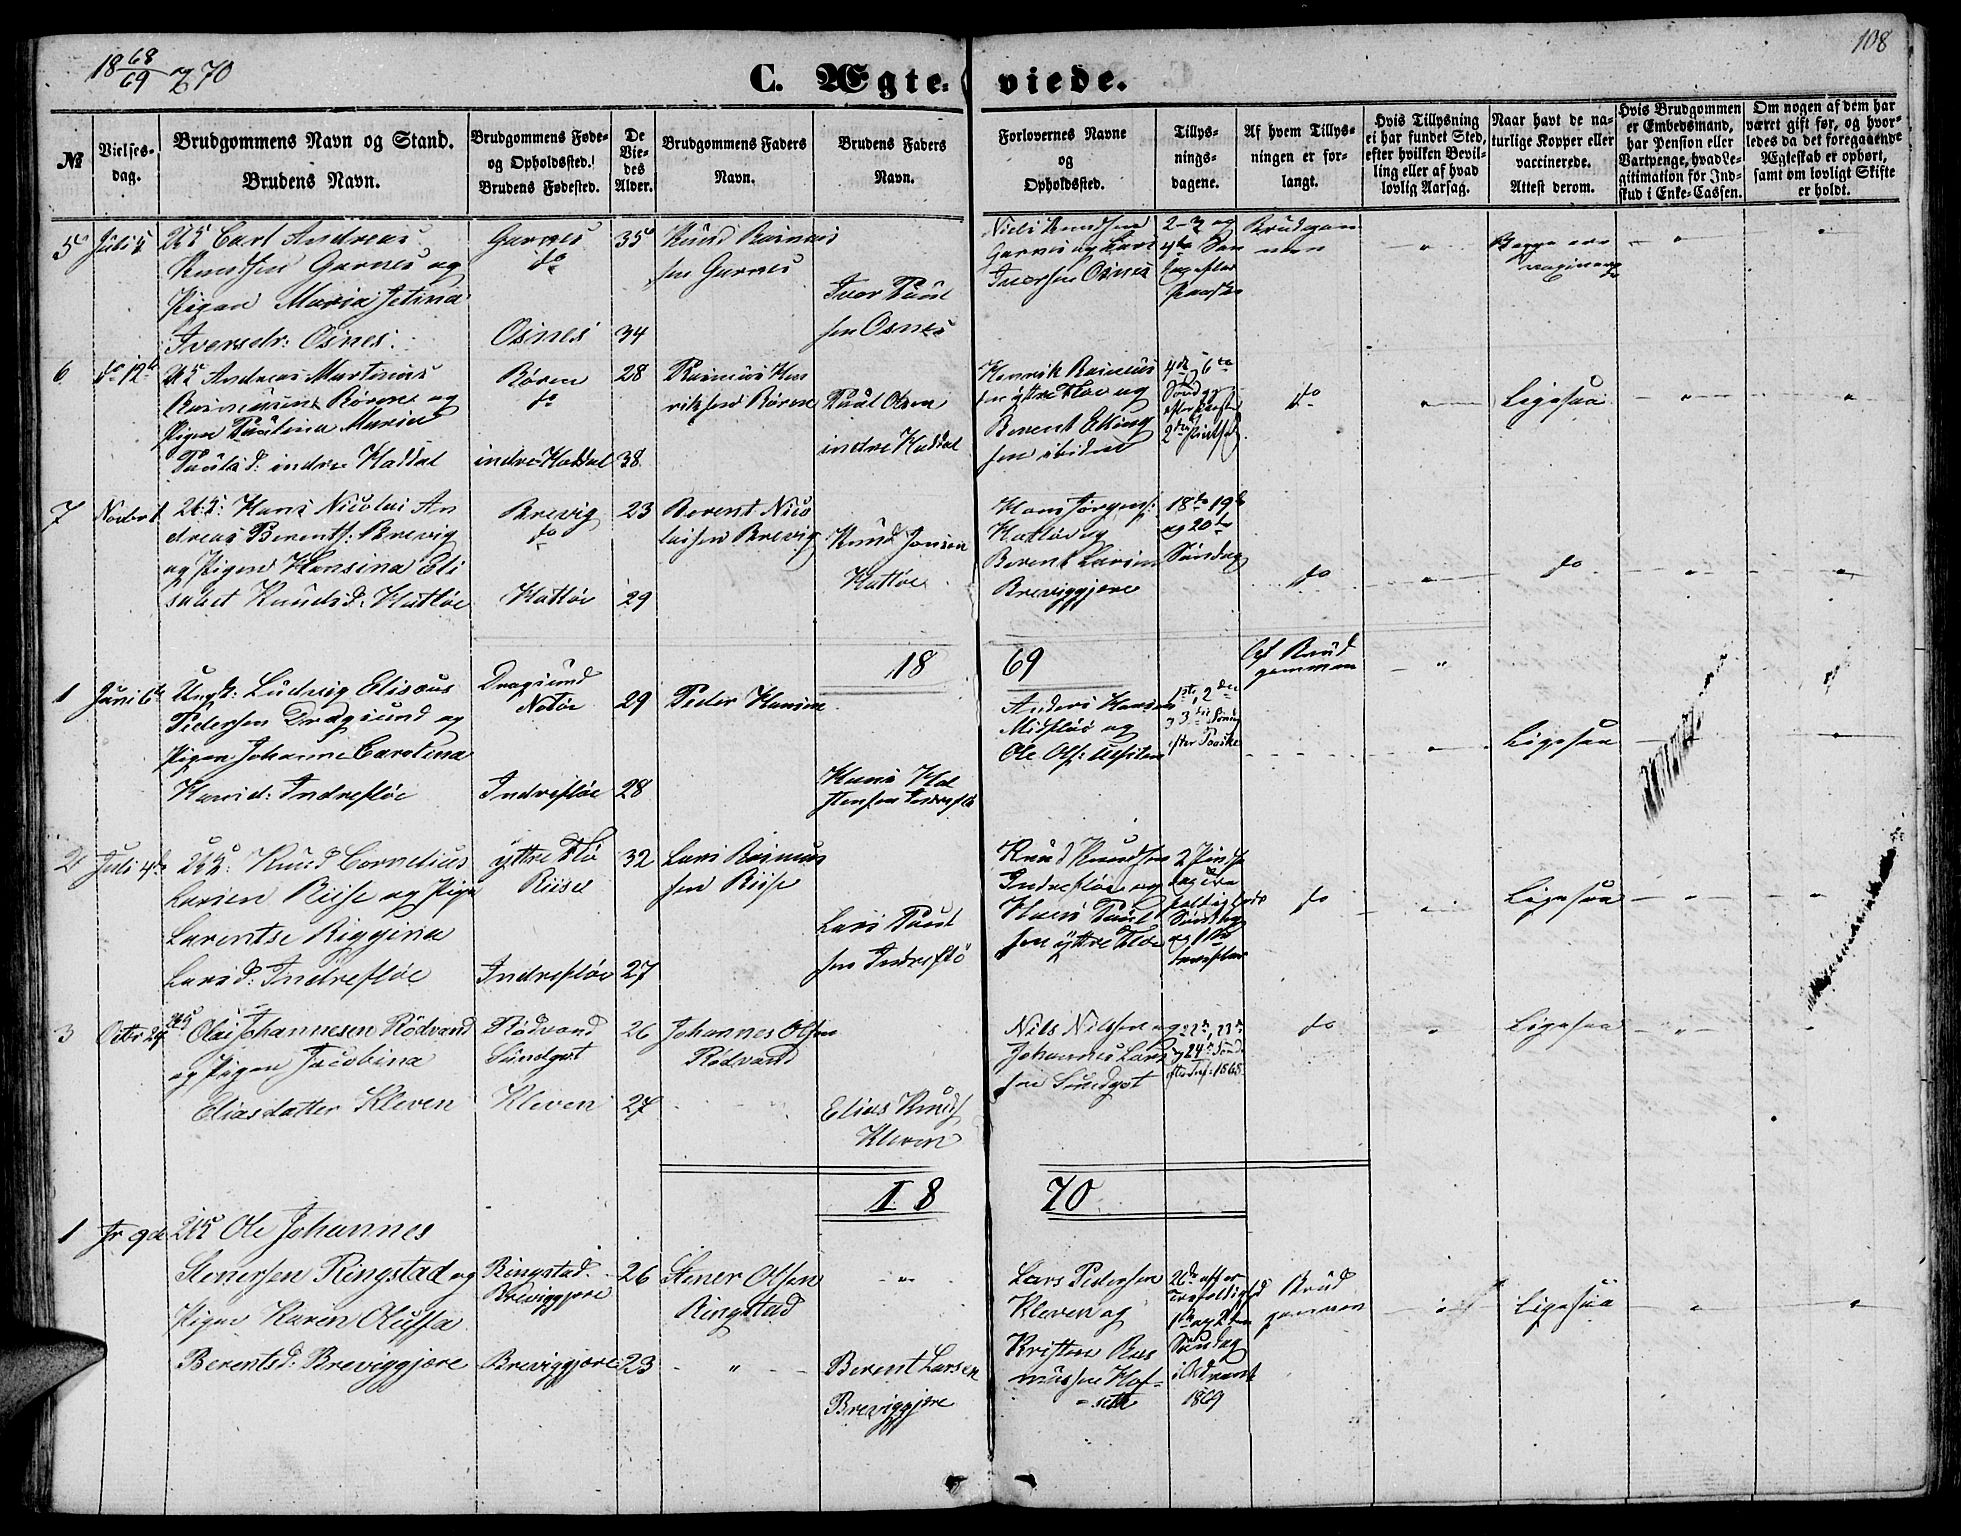 18 68/69 & 70
108
C. Ægteviede.
№
Vielsesdag.
Brudgommens Navn og Stand.
Brudens Navn.
Brudgommens Føde-
og Opholdssted.
Brudens Fødested.
De
Vie-
des
Alder.
Brudgommens Faders
Navn.
Brudens Faders
Navn.
Forlovernes Navne
og
Opholdssted.
Tillys-
nings-
dagene.
Af hvem Tillys-
ningen er for-
langt.
Hvis Tillysning
ei har fundet Sted,
efter hvilken Bevil-
ling eller af hvad
lovlig Aarsag.
Naar havt de na-
turlige Kopper eller
vaccinerede.
Attest derom.
Hvis Brudgommen
er Embedsmand,
har Pension eller
Vartpenge, hvad Le-
gitimation for Ind-
skud i Enke-Cassen.
Om nogen af dem har
været gift før, og hvor-
ledes da det foregaaende
Ægteskab er ophørt,
samt om lovligt Skifte
er holdt.
5 Juli 5
Carl Andreas
Knudsen Garnes og
Pigen Maria Jetina
Iversdr: Osnes.
Garnes
do
Osnes
35
34
Knud Rasmus
sen Garnes
Iver Paul
sen Osnes
Niels Knudsen
Garnes og Lars
Iversen Osnes
2- 3 og
4de Søn
dag efter
Paaske
Brudgom
men
Begge ere
vaxinerede
6 do 12te
Andreas Martinus
Rasmussen Røren og
Pigen Paulina Marie
Paulsd: indre Haddal
Røren
do
indre Haddal
28
38
Rasmus Hen
riksen Røren
Paul Olsen
indre Haddal
Henrik Rasmus
sen yttre Floe og
Berent Elling
sen ibidem
4de 6te
Søndag
efter Paaske
2den Pintsed.
do
Ligesaa
7 Novbr 1
Hans Nicolai An
dreas Berents: Brevig
og Pigen Hansina Eli
sabet Knudsd: Hatløe
Brevig
do
Hatløe
23
29
Berent Nico
laisen Brevig
Knud Jonsen
Hatløe
Hans Jørgens:
Hatløe og
Berent Larsen
Breviggjere
18de 19de
og 20de
Søndag
do
do
1869
1 Juni 6te
Ungk: Ludvig Elisæus
Pedersen Dragsund og
Pigen Johanne Carolina
Hansd: Indrefløe
Dragsund
Notøe
Indrefløe
29
28
Peder Hansen
Hans Hol
stensen Indreflø
Anders Hansen
Midfløe og
Ole Ols: Ulfsten
1ste, 2den
og 3die Sønd
efter Paaske
Af Brud
gommen
Ligesaa
2 Juli 4de
Knud Cornelius
Larsen Riise og Pige
Larentse Regina
Larsd: Indrefløe
yttre Flø
Riise
Indrefløe
32
27
Lars Rasmus
sen Riise
Lars Paul
sen Indreflø
Knud Knudsen
Indrefløe og
Hans Paul
sen yttre Fløe
2 Pindse
dag
Søndag
do
Ligesaa
3 Octbr 24
Olai Johannesen Rødvand
og Pigen Jacobina
Eliasdatter Kleven
Rødvand
Sundgot
Kleven
26
27
Johannes Olsen
Rødvand
Elias Knuds
Kleven
Nils Nilssen og
Johannes Lars
sen Sundgot
22de, 23de
og 24de Sønd
efter Tref: 1868
do
Ligesaa
1870
1 Jr 9de
Ole Johannes
Stenersen Ringstad og
Pigen Karen Oluffa
Berentsd: Breviggjere
Ringstad
Breviggjere
Breviggjere
26
23
Stener Olsen
Ringstad
Berent Larsen
Breviggjere
Lars Pedersen
Kleven og
Kristen Ras
mussen Hof-
seth
26de efter
Trefoldighed
1ste og 2den
Søndag
i Advent
1869
Brud
gommen
Ligesaa